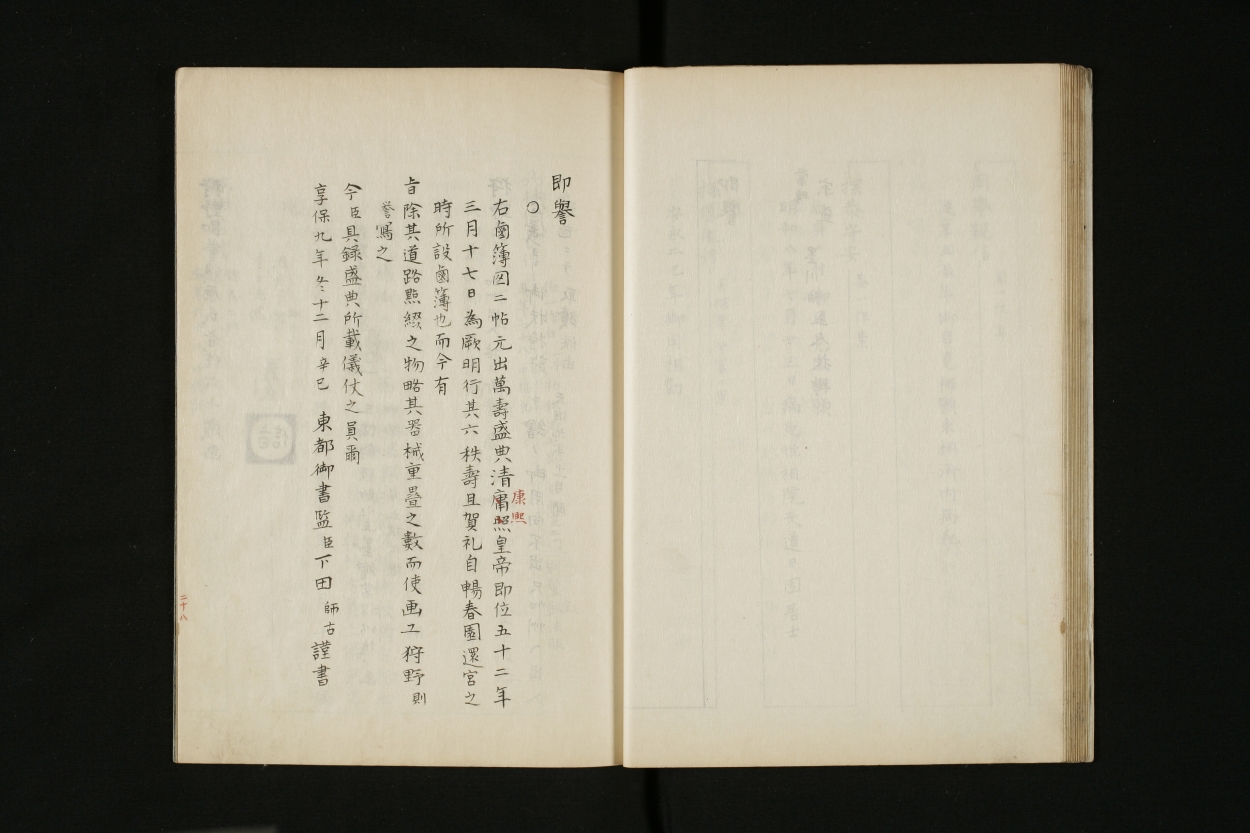 即譽
○右鹵簿図二帖元出萬壽盛典清庸熙皇帝即位五十二年
康熙
三月十七日為厥明行其六秩壽且賀礼自暢春園還宮之
時所設鹵簿也而今有
旨除其道路點綴之物略其器械重畳之數而使画工狩野則
誉寫之
今臣具録盛典所載儀仗之員爾
享保九年冬十二月辛巳 東都御書監臣下田師古謹書
二十八